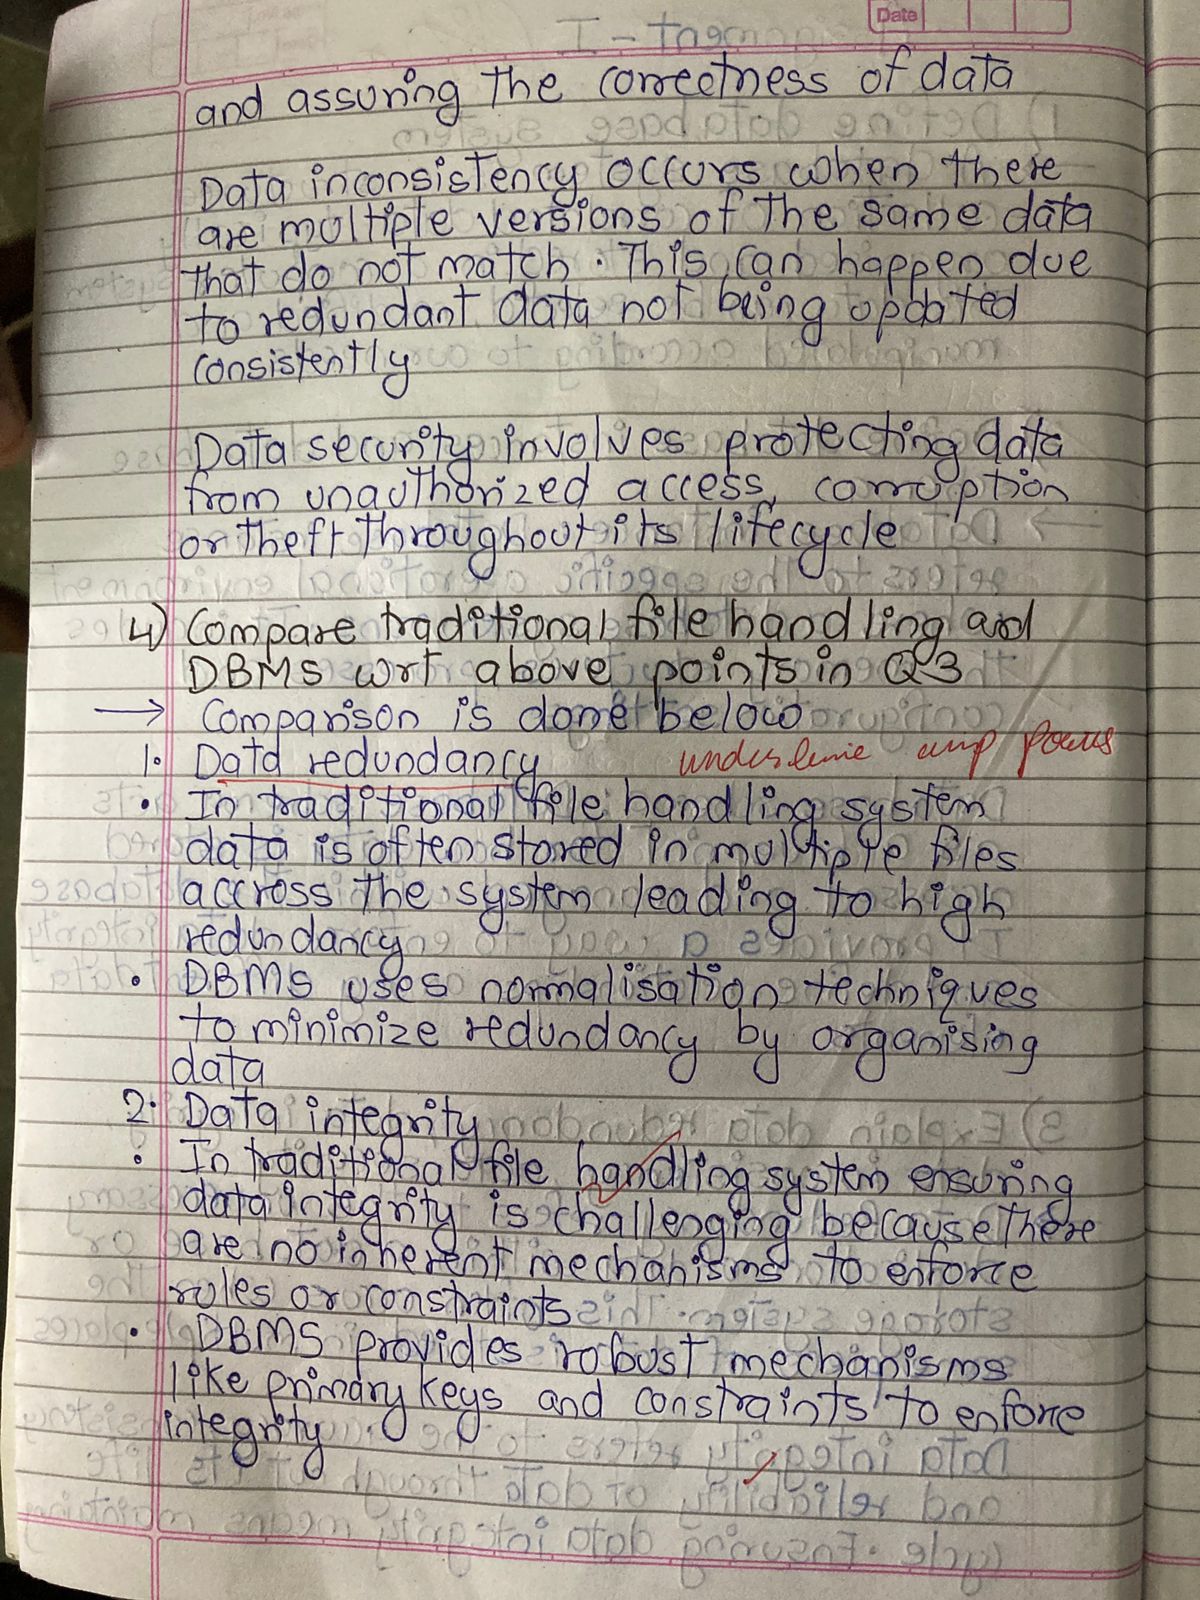 Date
and assuring the correctness of data
Data inconsistency occurs when there
are multiple versions of the same data
that do not match. This can happen due
to redundant data not being updated
consistently
Data security involves protecting data
from unauthorized access, corruption
or theft throughout its lifecycle
4) Compare traditional file handling and
DBMS wrt above points in Q3
→ Comparison is done below
1. Data redundancy underline imp points
• In traditional file handling system
data is often stored in multiple files
accross the system leading to high
redundancy
• DBMS uses normalisation techniques
to minimize redundancy by organising
data
2. Data integrity
• In traditional file handling system ensuring
data integrity is challenging because there
are no inherent mechanisms to enforce
rules or constraints
• DBMS provides robust mechanisms
like primary keys and constraints to enforce
integrity